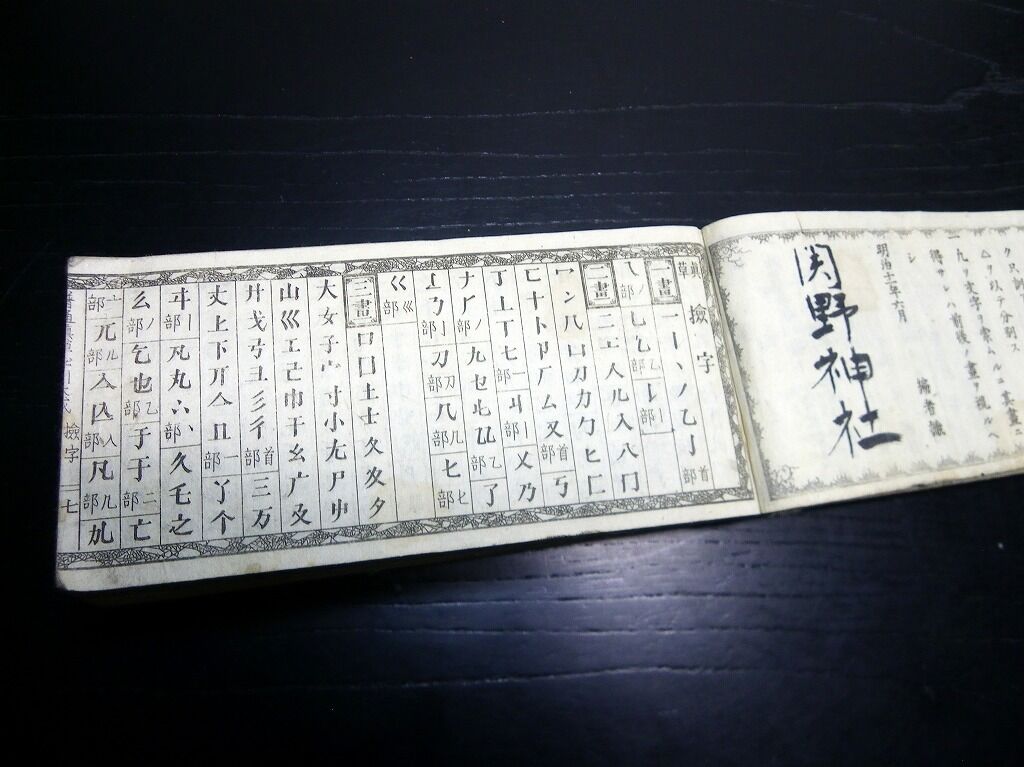 ク只
△ヲ以テ分別ス
九ヲ文字ヲ索ムルニ其畫ニ
得サレハ前後ノ畫ヲ視ルヘ
シ
編者識
明治十一年六月
関野神社
檢字
一畫
一丨丶ノ乙亅首部
乀ノ部乚乙部
二畫
二亠人儿入八冂
冖冫几凵刀力勹匕匚
匸十卜卩厂厶又首部丂
丁丄丅七一部丩丨部乂乃
𠂇ノ部九乜乙部了
刀刀部几几部匕匕部
巛巛部
三畫
口囗土士夂夊夕
大女子宀寸小尢尸屮
山巛工己巾干幺广廴
廾弋弓彐彡彳首部三万
丈上下丌亼一部丫个
丨部凡丸丶部久乇之
么ノ部乞也乙部于亍二部亡
亠部兀儿部入亾入部凡几部
檢字
七